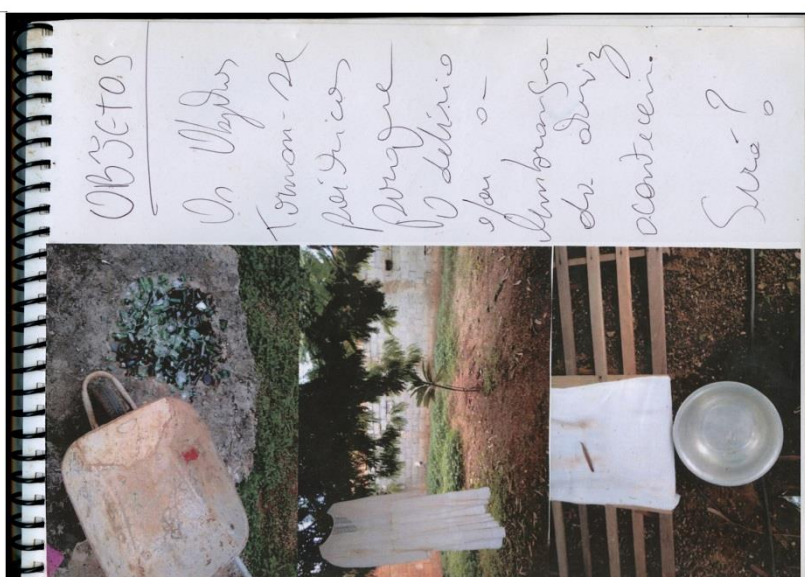 OBJETOS
Os Objetos
Tornam-se
porque
O delírio
e/ou a
lembrança
do
acontecem.
Será?